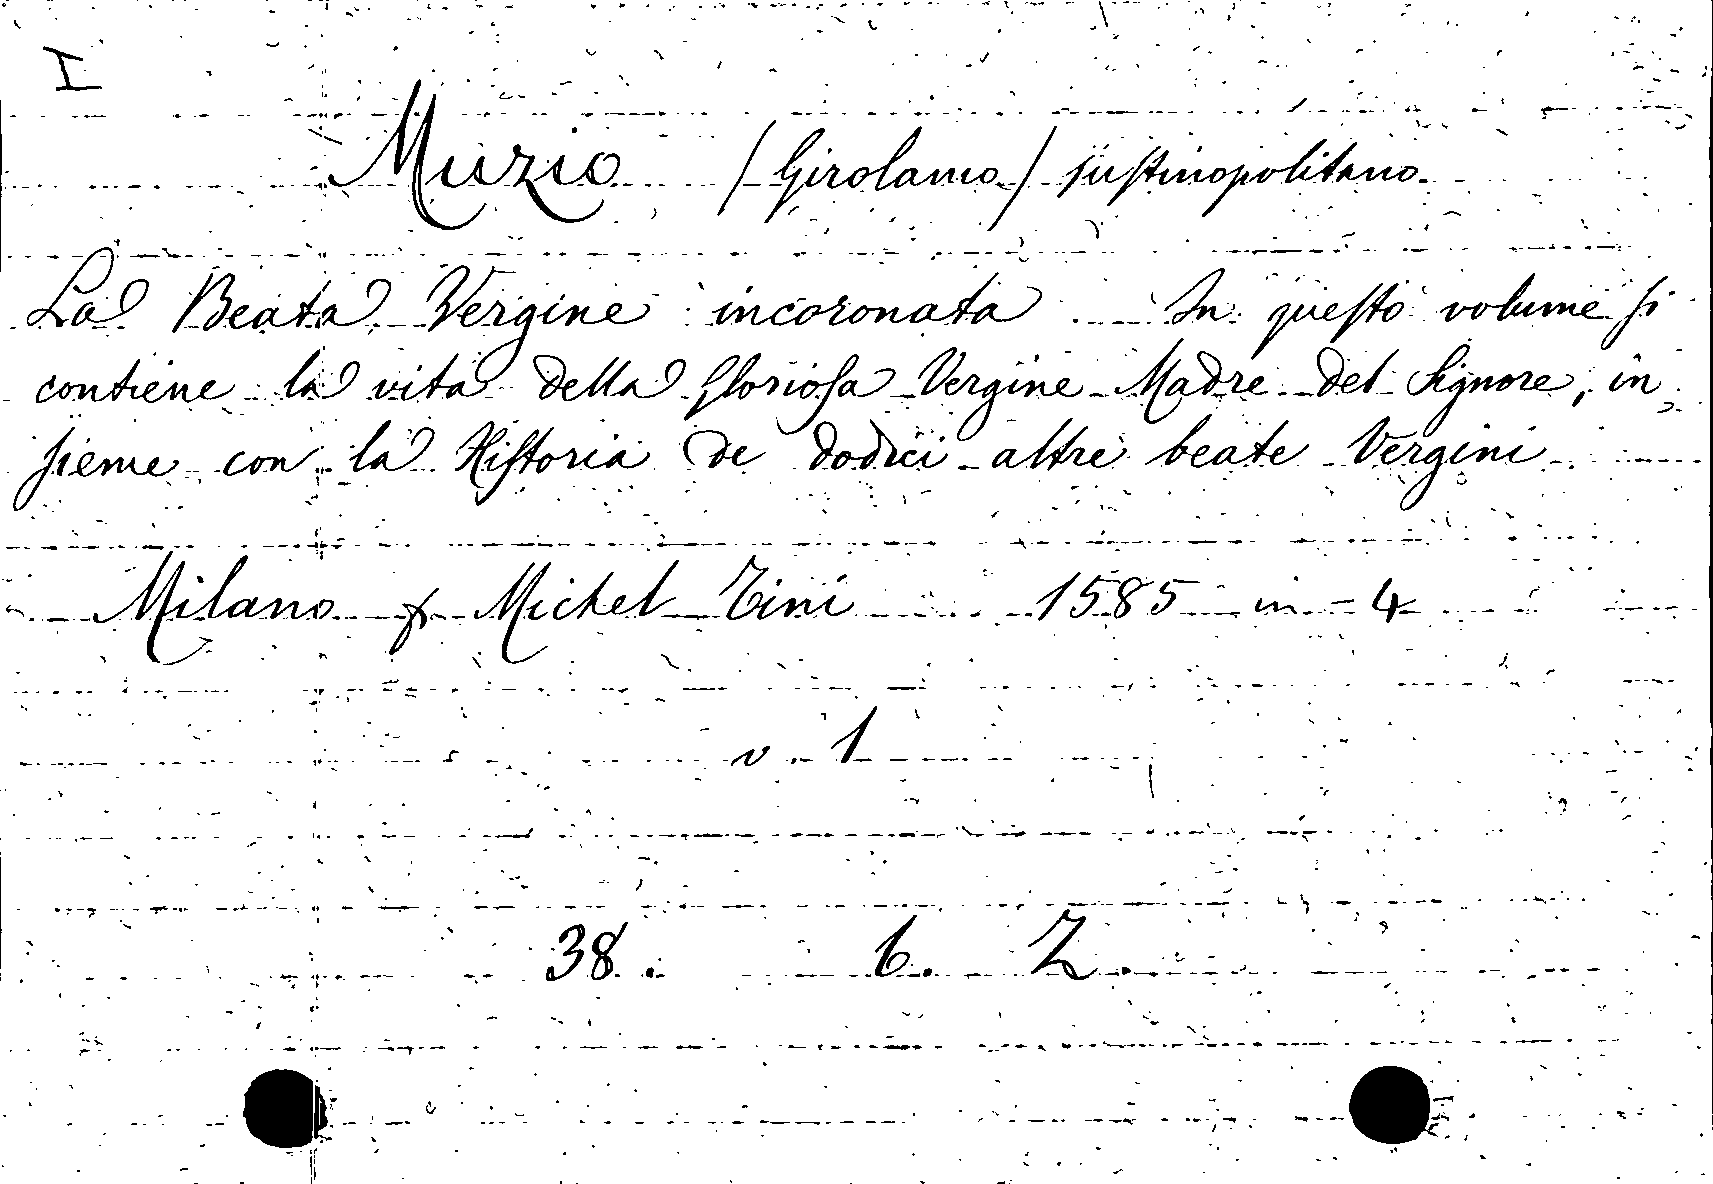 I
Muzio (Girolamo) justinopolitano.
La Beata Vergine incoronata In questo volume si
contiene la vita della gloriosa Vergine Madre del Signore, in,
sieme con la Historia de dodici altre beate Vergini
Milano p. Michel Tini 1585 in-4
v. 1
38. 6. Z.